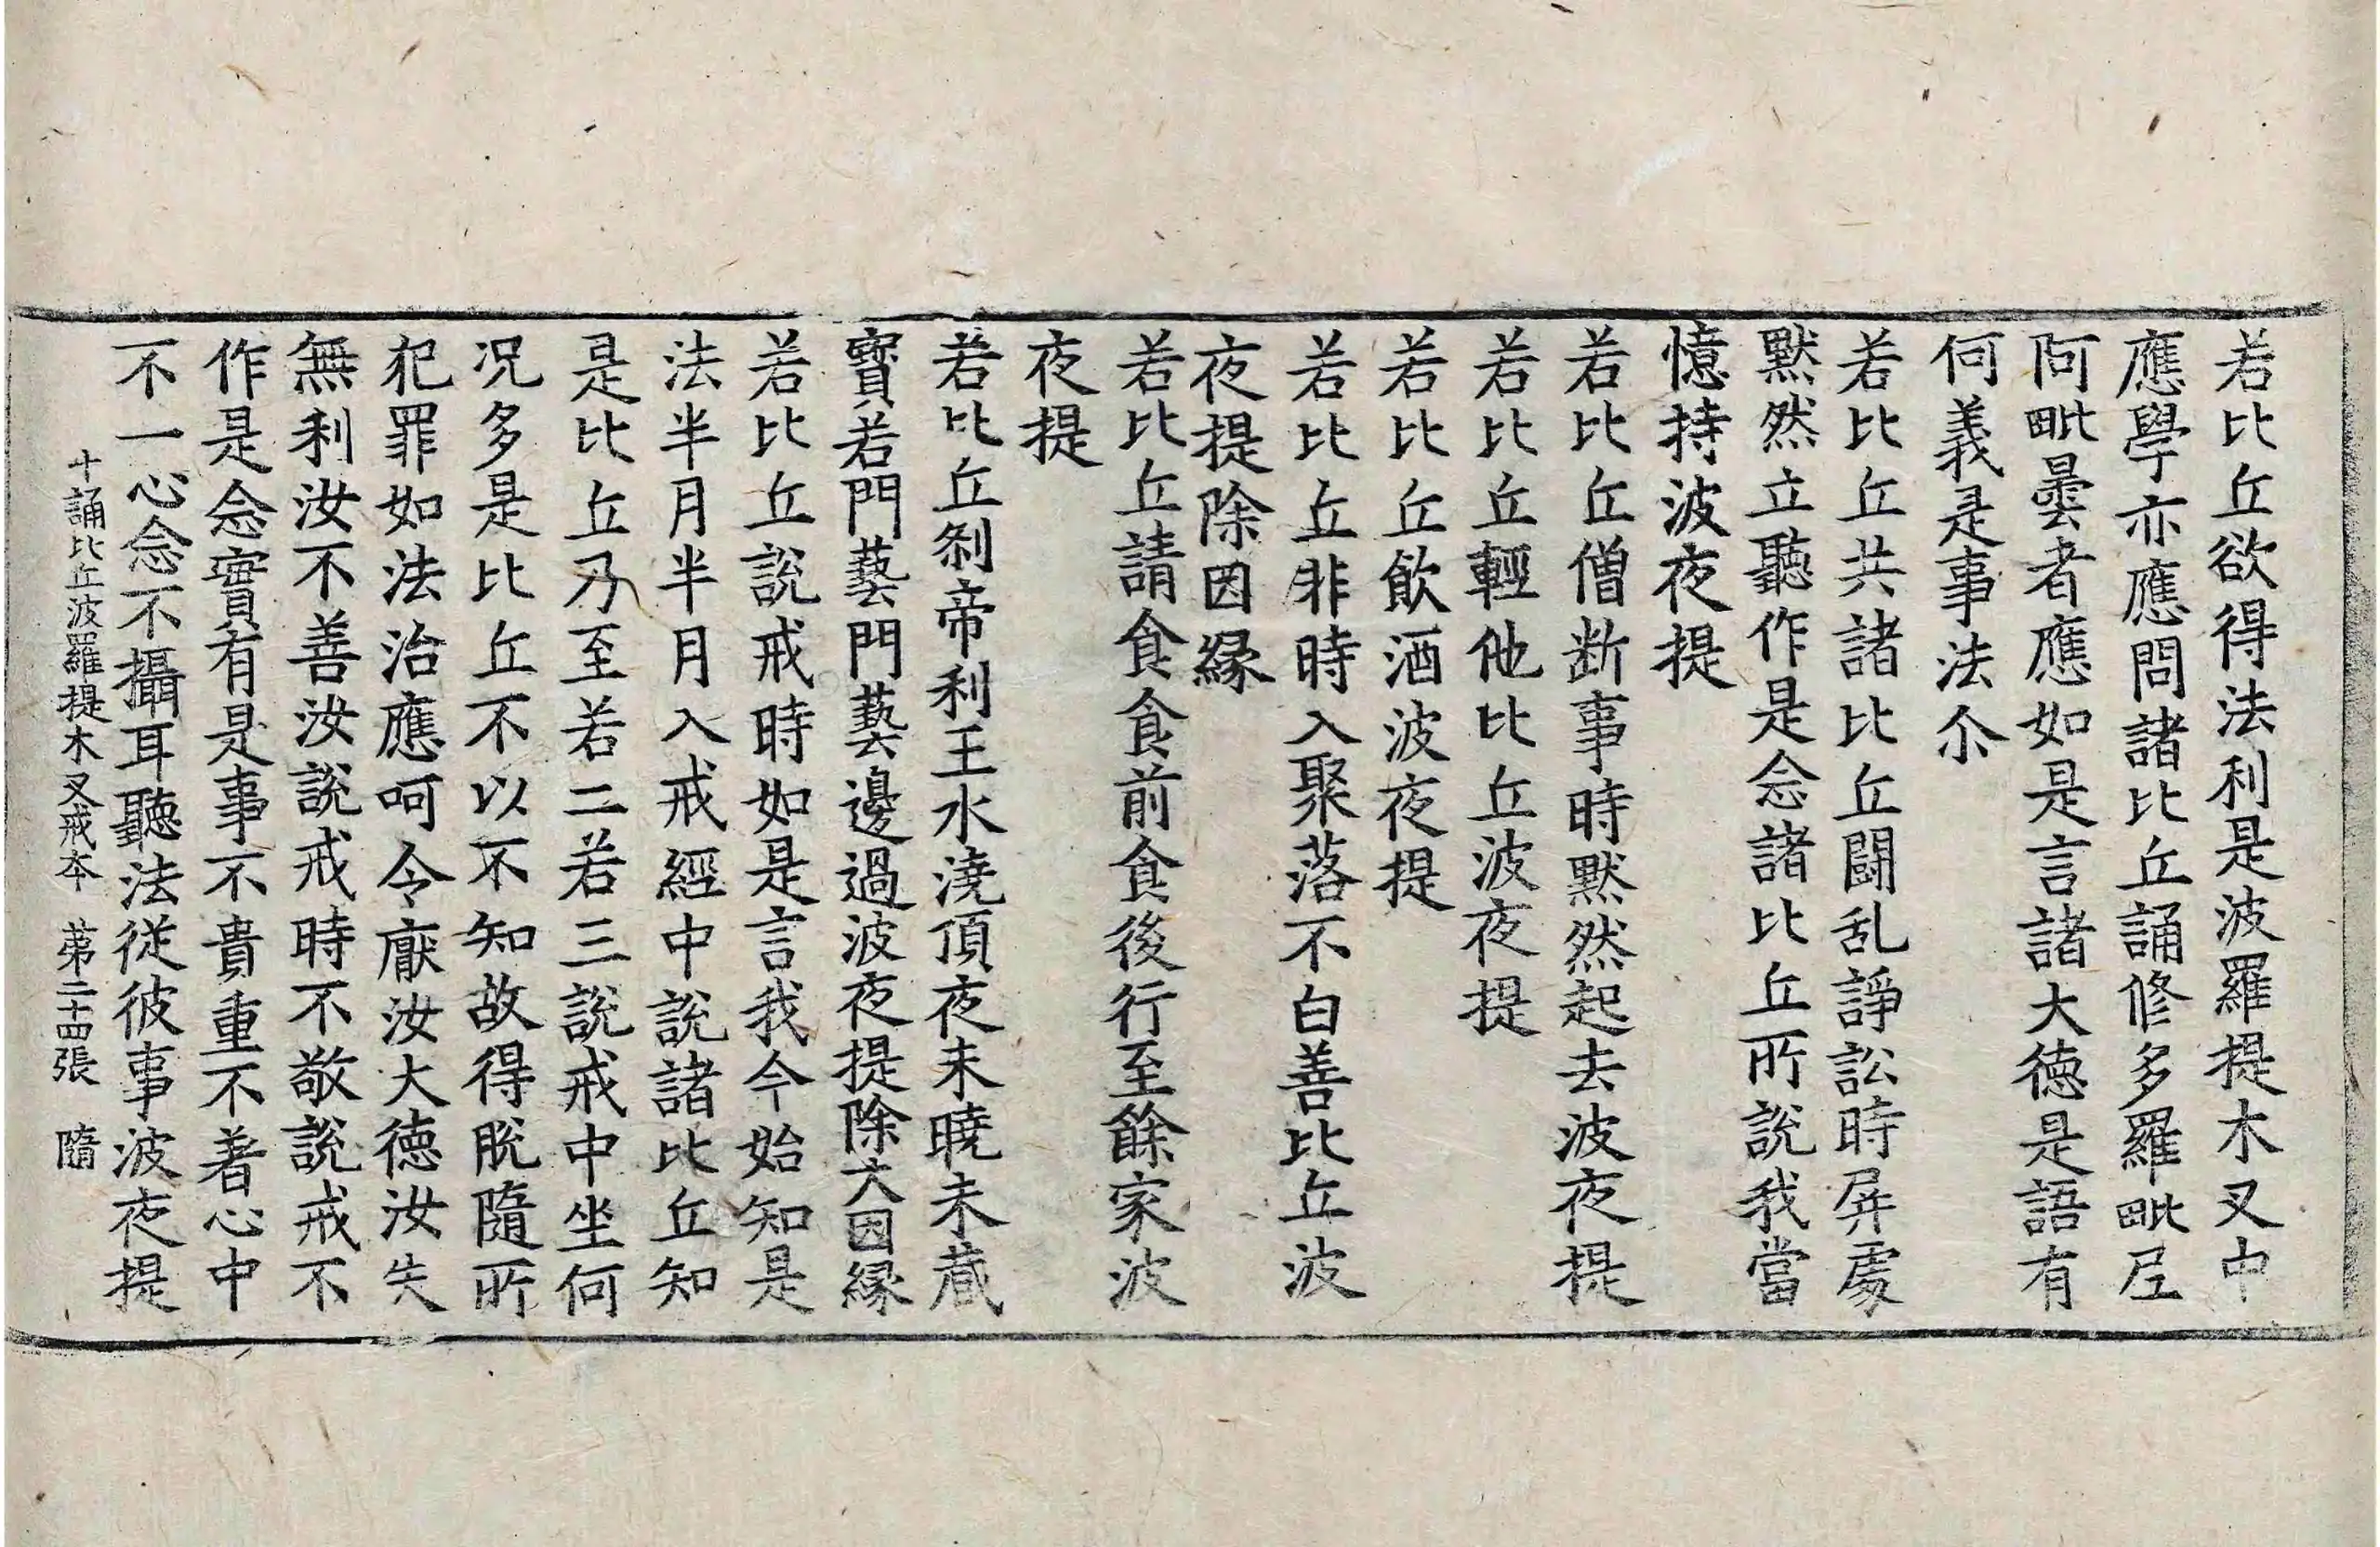 若比丘欲得法利是波羅提木叉中
應學亦應問諸比丘誦修多羅毗尼
阿毗曇者應如是言諸大德是語有
何義是事法尒
若比丘共諸比丘闘乱諍訟時屏處
默然立聽作是念諸比丘所說我當
憶持波夜提
若比丘僧断事時默然起去波夜提
若比丘輕他比丘波夜提
若比丘飲酒波夜提
若比丘非時入聚落不白善比丘波
夜提除因緣
若比丘請食食前食後行至餘家波
夜提
若比丘刹帝利王水澆頂夜未曉未藏
寶若門藝門藝邊過波夜提除大因緣
若比丘說戒時如是言我今始知是
法半月半月入戒經中說諸比丘知
是比丘乃至若二若三說戒中坐何
況多是比丘不以不知故得脫隨所
犯罪如法治應呵令厭汝大德汝失
無利汝不善汝說戒時不敬說戒不
作是念實有是事不貴重不著心中
不一心念不攝耳聽法從彼事波夜提
十誦比丘波羅提木叉戒本 第二十四張 隨